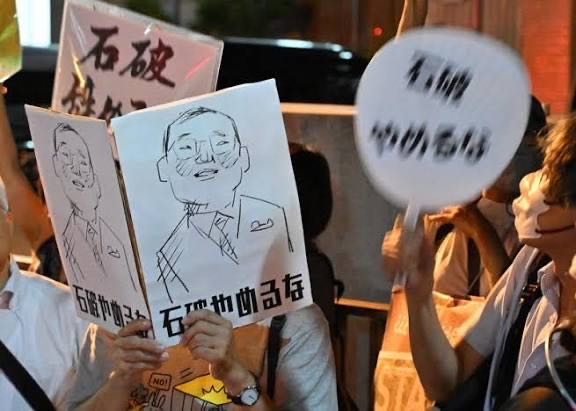 石破
石破やめるな
石破やめるな
石破
やめるな
NO!